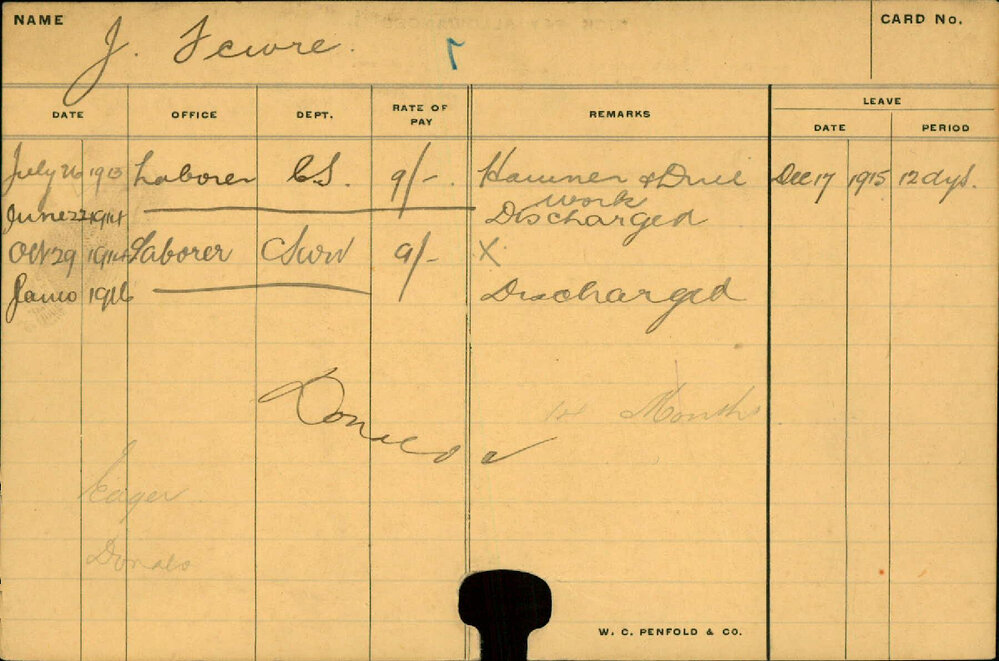 NAME
J. Fewre.
CARD No.
DATE OFFICE DEPT. RATE OF PAY REMARKS LEAVE
DATE PERIOD
July 26 1913 Laborer C.S. 9/- Hammer & Drill work Dec 17 1915 12 dys.
June 22 1914 Discharged
Oct 29 1914 Laborer 9/- X
Jan 10 1916 Discharged
Months
Eager
Donald
W. C. PENFOLD & CO.